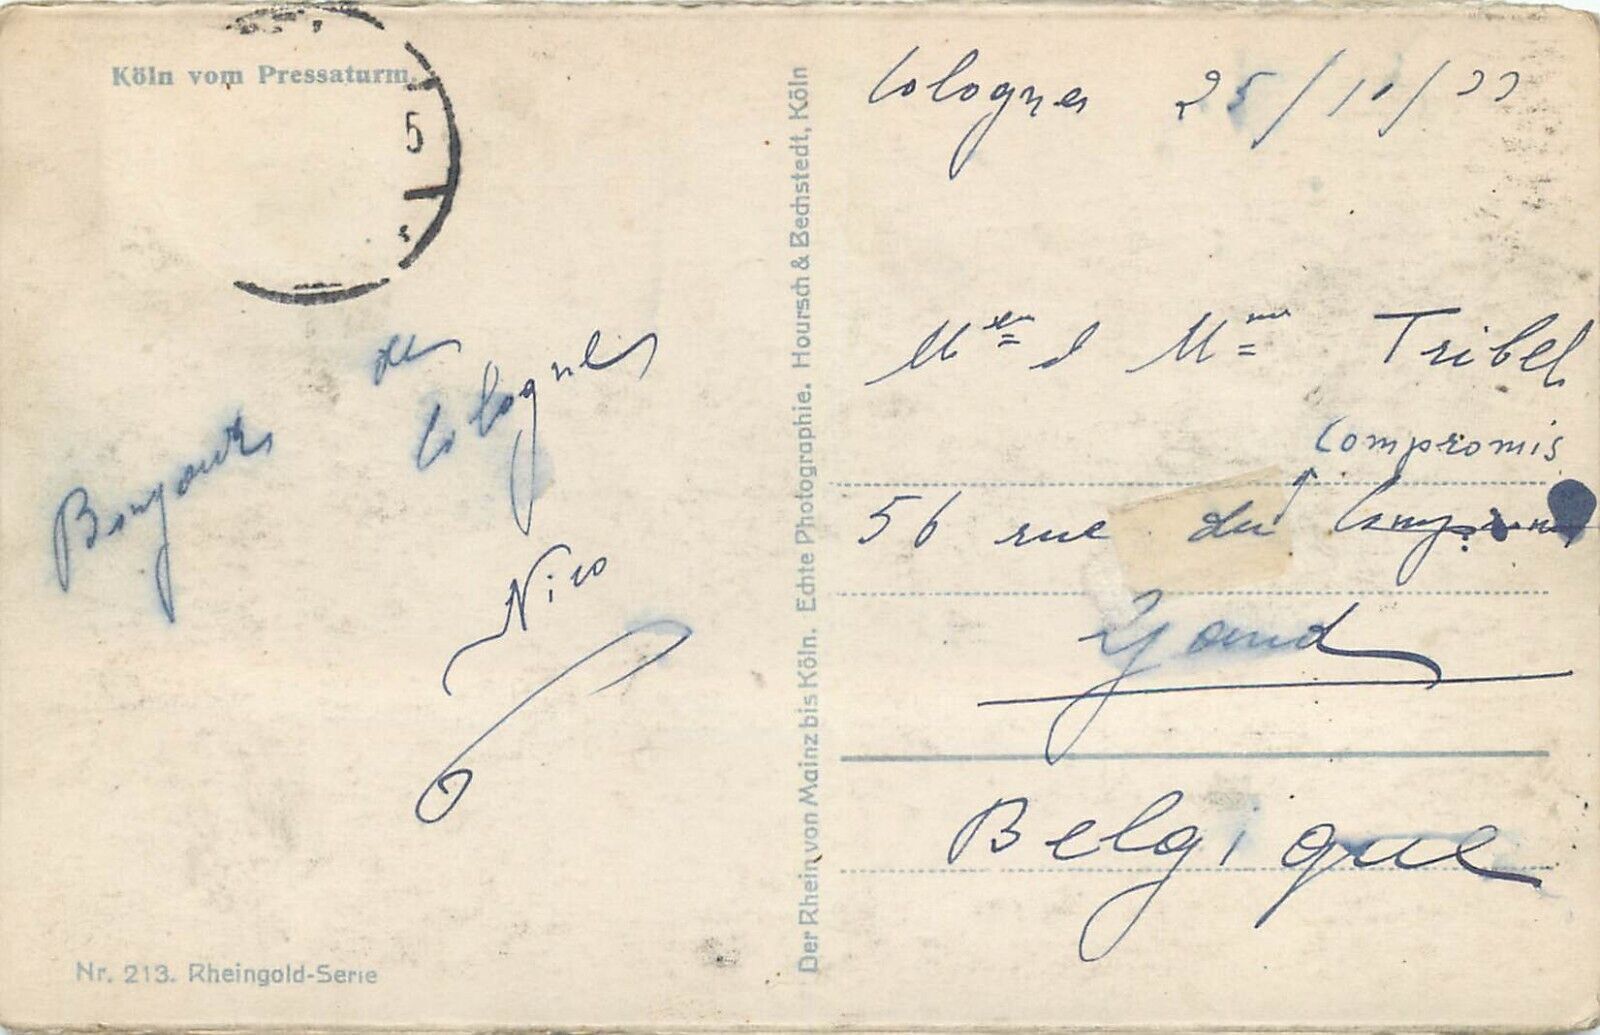 Köln vom Pressaturm.
5
Bonjour de
Cologne
Nico
Nr. 213. Rheingold-Serie
Der Rhein von Mainz bis Köln. Echte Photographie. Hoursch & Bechstedt, Köln
Cologne 25/11/33
Mme Tribel
Compromis
56 rue du
Gand
Belgique